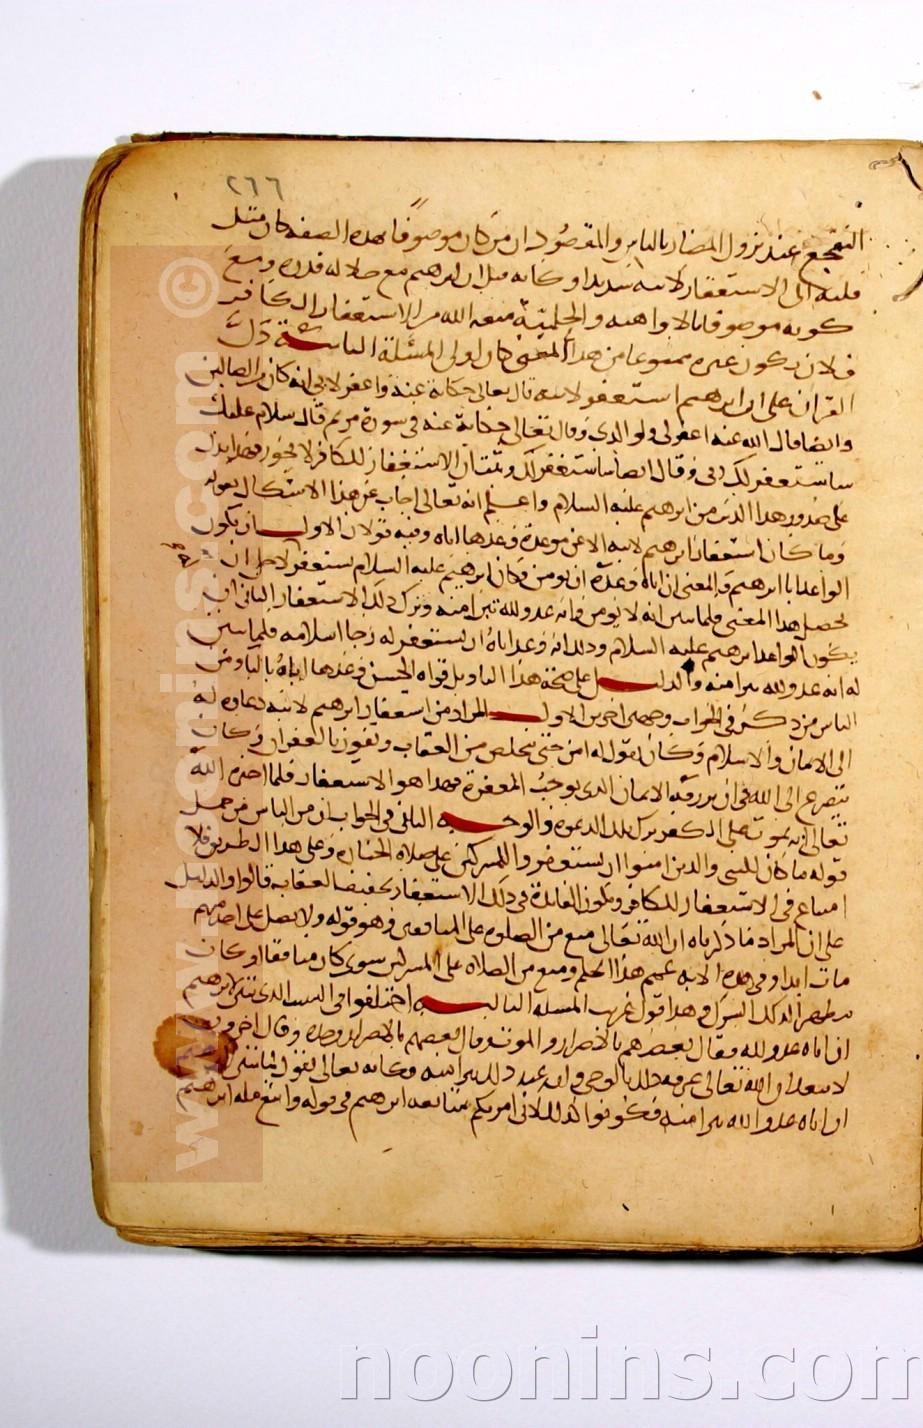 ٢٦٦
التفجع عند نزول المضار بالناس والمقصود ان من كان موصوفا بهذه الصفه كان مثل
قلبه الى الاستغفار لابيه شديدا وكانه قيل ان ابرهيم مع جلاله قدره ومع
كونه موصوفا بالاواهيه والحليميه منعه الله من الاستغفار الكافر
فلان يكون غيره ممنوعا من هذا المعنى كان اولى المسئلة الثانية دل
القران على ان ابرهيم استغفر لابيه قال تعالى حكاية عنه واغفر لابي انه كان من الضالين
وايضا قال الله عنه اغفر لي ولوالدي وقال تعالى حكاية عنه في سورة مريم قال سلام عليك
ساستغفر لك ربي وقال ايضا ساستغفر لك وثبت ان الاستغفار للكافر لا يجوز فهذا يدل
على صدور هذا الذنب من ابرهيم عليه السلام واعلم انه تعالى اجاب عن هذا الاشكال بقوله
وما كان استغفار ابرهيم لابيه الا عن موعدة وعدها اياه وفيه قولان الاول ان يكون
الواعد ابا ابرهيم والمعنى ان اباه وعده ان يومن فكان ابرهيم عليه السلام يستغفر لاجل ان
يحصل هذا المعنى فلما تبين له انه لا يومن وانه عدو لله تبرا منه وترك ذلك الاستغفار الثاني ان
يكون الواعد ابرهيم عليه السلام وذلك انه وعد اباه ان يستغفر له رجا اسلامه فلما تبين
له انه عدو لله تبرا منه والدليل على صحة هذا التاويل قراه الحسن وعدها اباه بالبا ومن
الناس من ذكر في الجواب وجهين اخرين الاول المراد من استغفار ابرهيم لابيه دعاوه له
الى الايمان والاسلام وكان يقول له امن حتى تتخلص من العقاب وتفوز بالغفران وكان
يتضرع الى الله في ان يرزقه الايمان الذي يوجب المغفرة فهذا هو الاستغفار فلما اخبره الله
تعالى انه يموت على الكفر ترك تلك الدعوه والوجه الثاني في الجواب ان من الناس من حمل
قوله ما كان للنبي والذين امنوا ان يستغفروا للمشركين على صلاه الجنازه وعلى هذا الطريق فلا
امتناع في الاستغفار للكافر وتكون الفايدة في ذلك الاستغفار تخفيف العقاب قالوا والدليل
على ان المراد ما ذكرناه ان الله تعالى منع من الصلوه على المنافقين وهو قوله ولا تصل على احد منهم
مات ابدا وفي هذه الايه عمم هذا الحكم ومنع من الصلاه على المشركين سوى كان منافقا او كان
مظهرا لذلك الشرك وهذا قول غريب المسئله الثالثه اختلفوا في السبب الذي تبين لابرهيم
ان اباه عدو لله فقال بعضهم بالاصرار والموت وقال بعضهم بالاصرار وحده وقال اخرون
لا يبعد ان الله تعالى عرفه ذلك بالوحي وانه عند ذلك تبرا منه وكانه تعالى يقول لما تبين
ان اباه عدو لله تبرا منه فكونوا كذلك لاني امرتكم بمتابعه ابرهيم في قوله واتبع مله ابرهيم
www.noonins.com ©
noonins.com